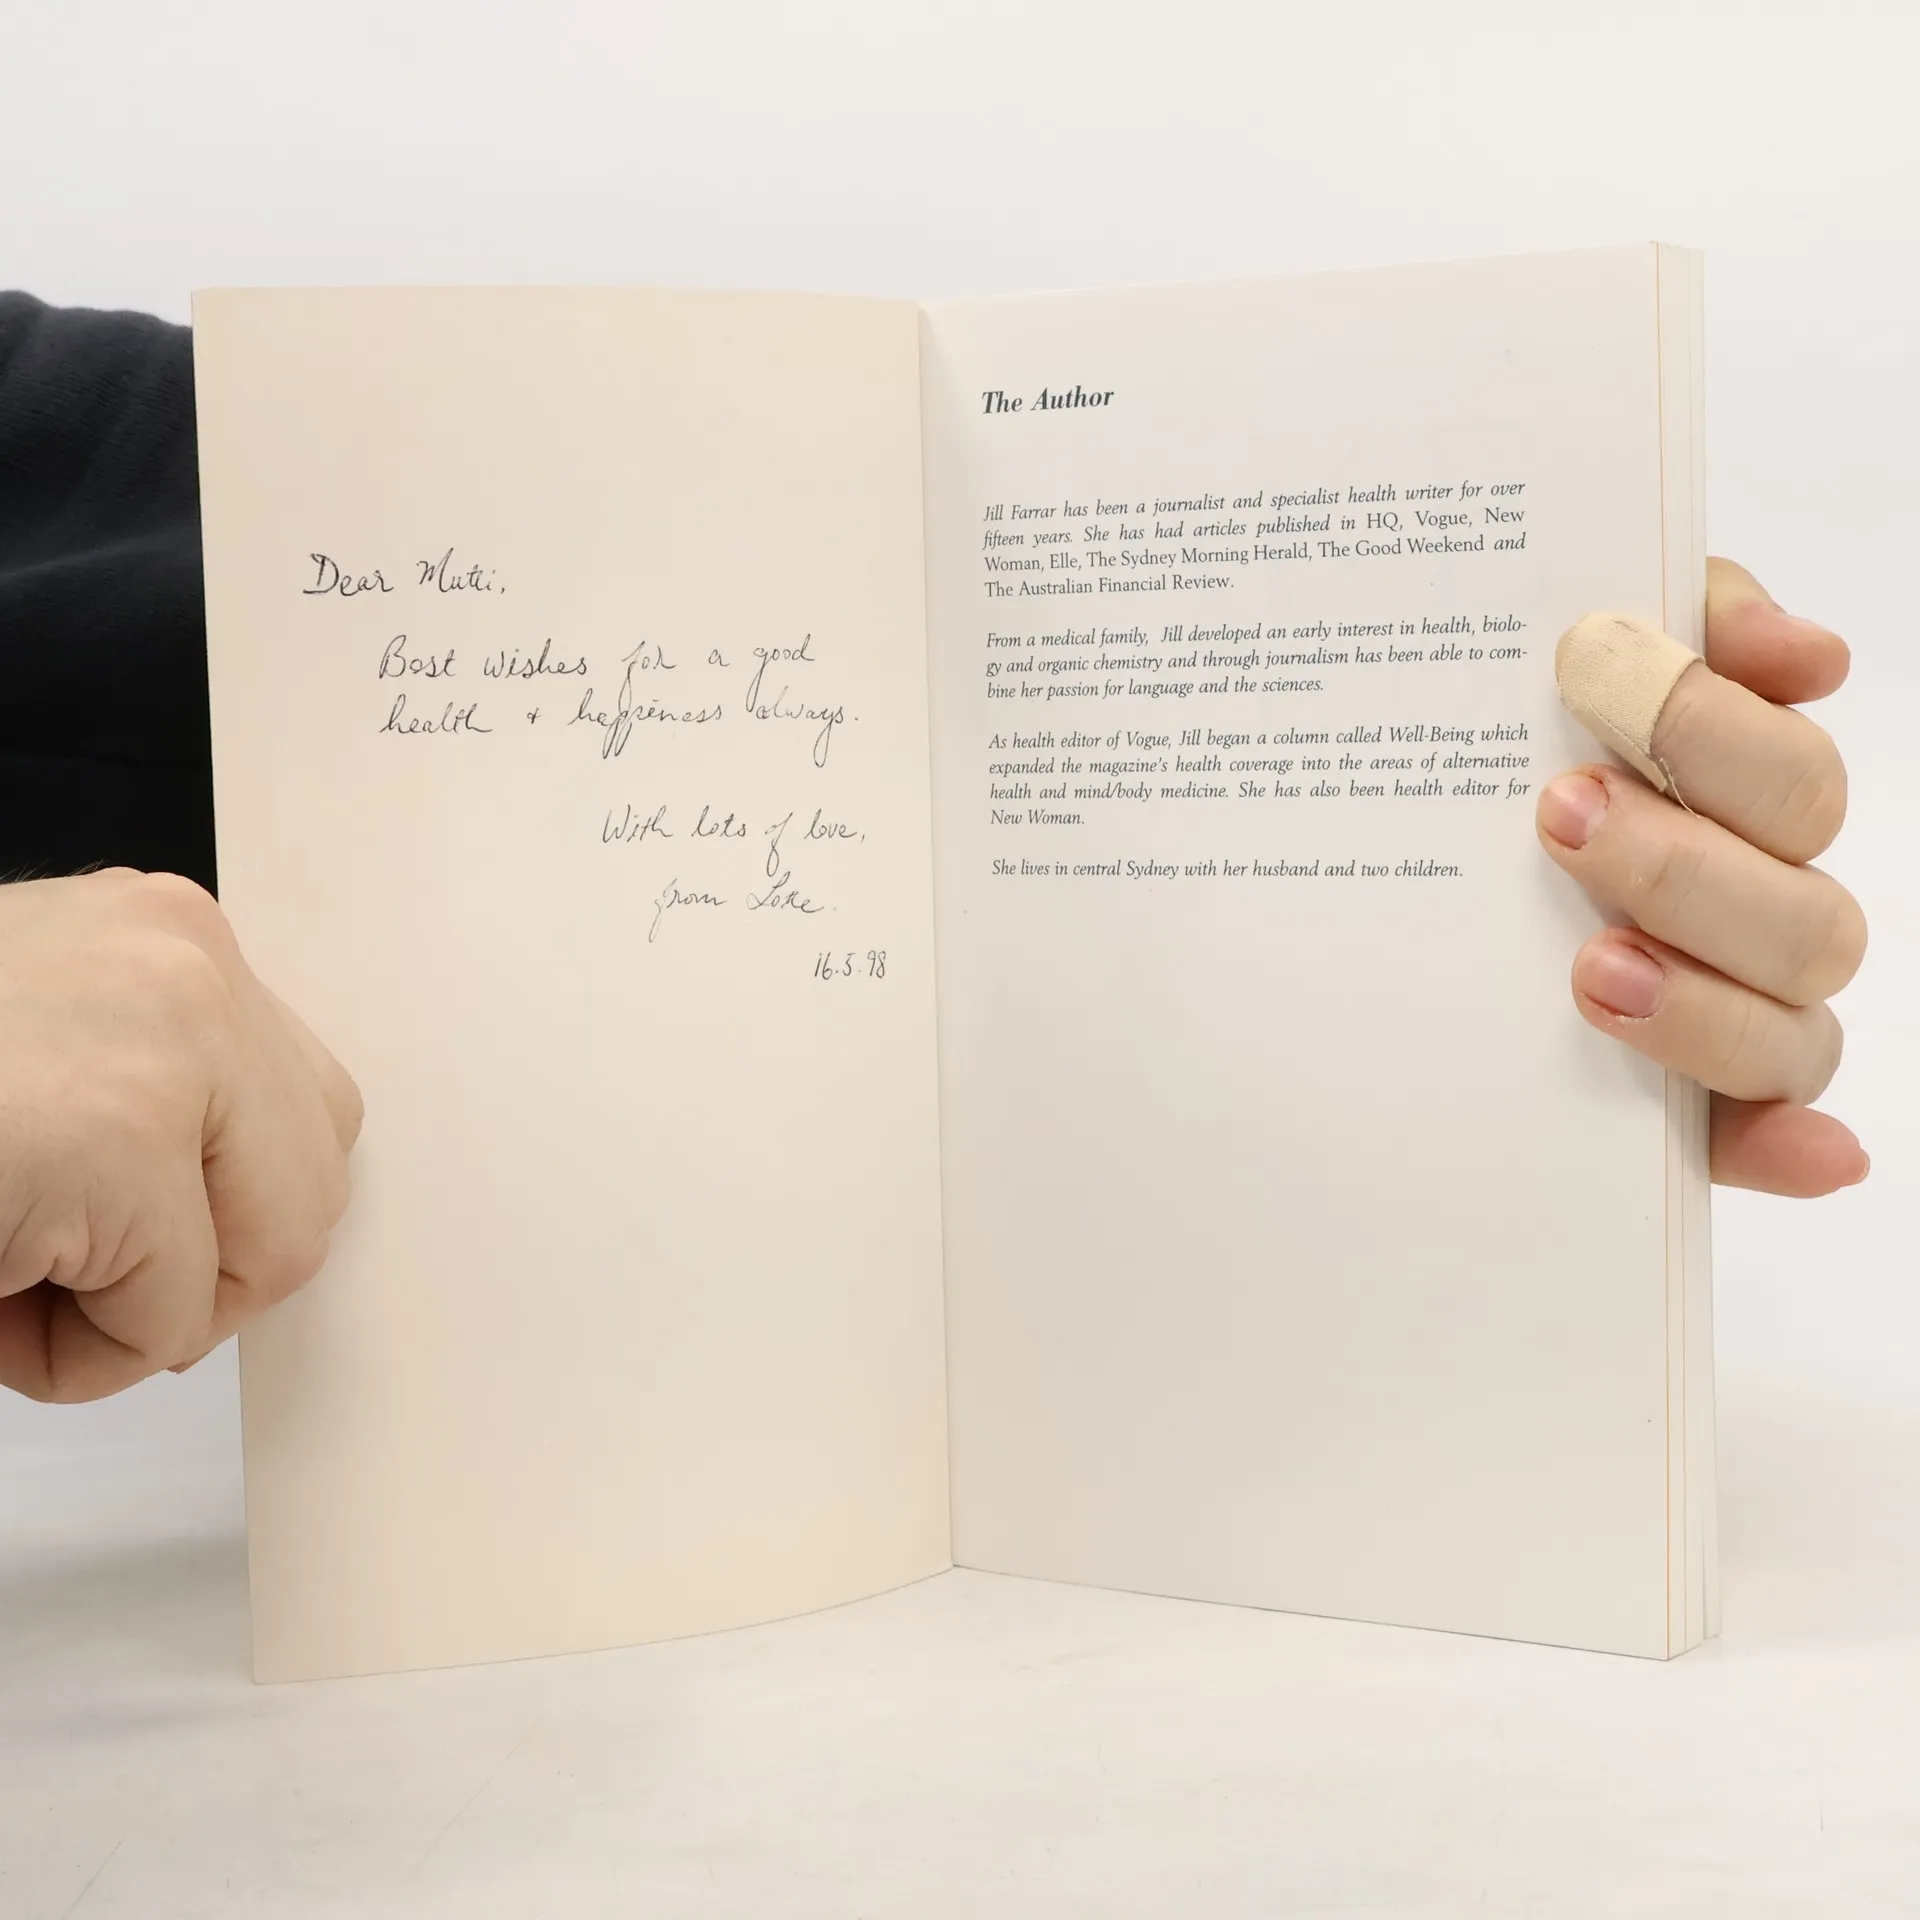 Dear Mutti,
Best wishes for a good
health + happiness always.
With lots of love,
from Lotte.
16.5.98
The Author
Jill Farrar has been a journalist and specialist health writer for over
fifteen years. She has had articles published in HQ, Vogue, New
Woman, Elle, The Sydney Morning Herald, The Good Weekend and
The Australian Financial Review.
From a medical family, Jill developed an early interest in health, biolo-
gy and organic chemistry and through journalism has been able to com-
bine her passion for language and the sciences.
As health editor of Vogue, Jill began a column called Well-Being which
expanded the magazine's health coverage into the areas of alternative
health and mind/body medicine. She has also been health editor for
New Woman.
She lives in central Sydney with her husband and two children.